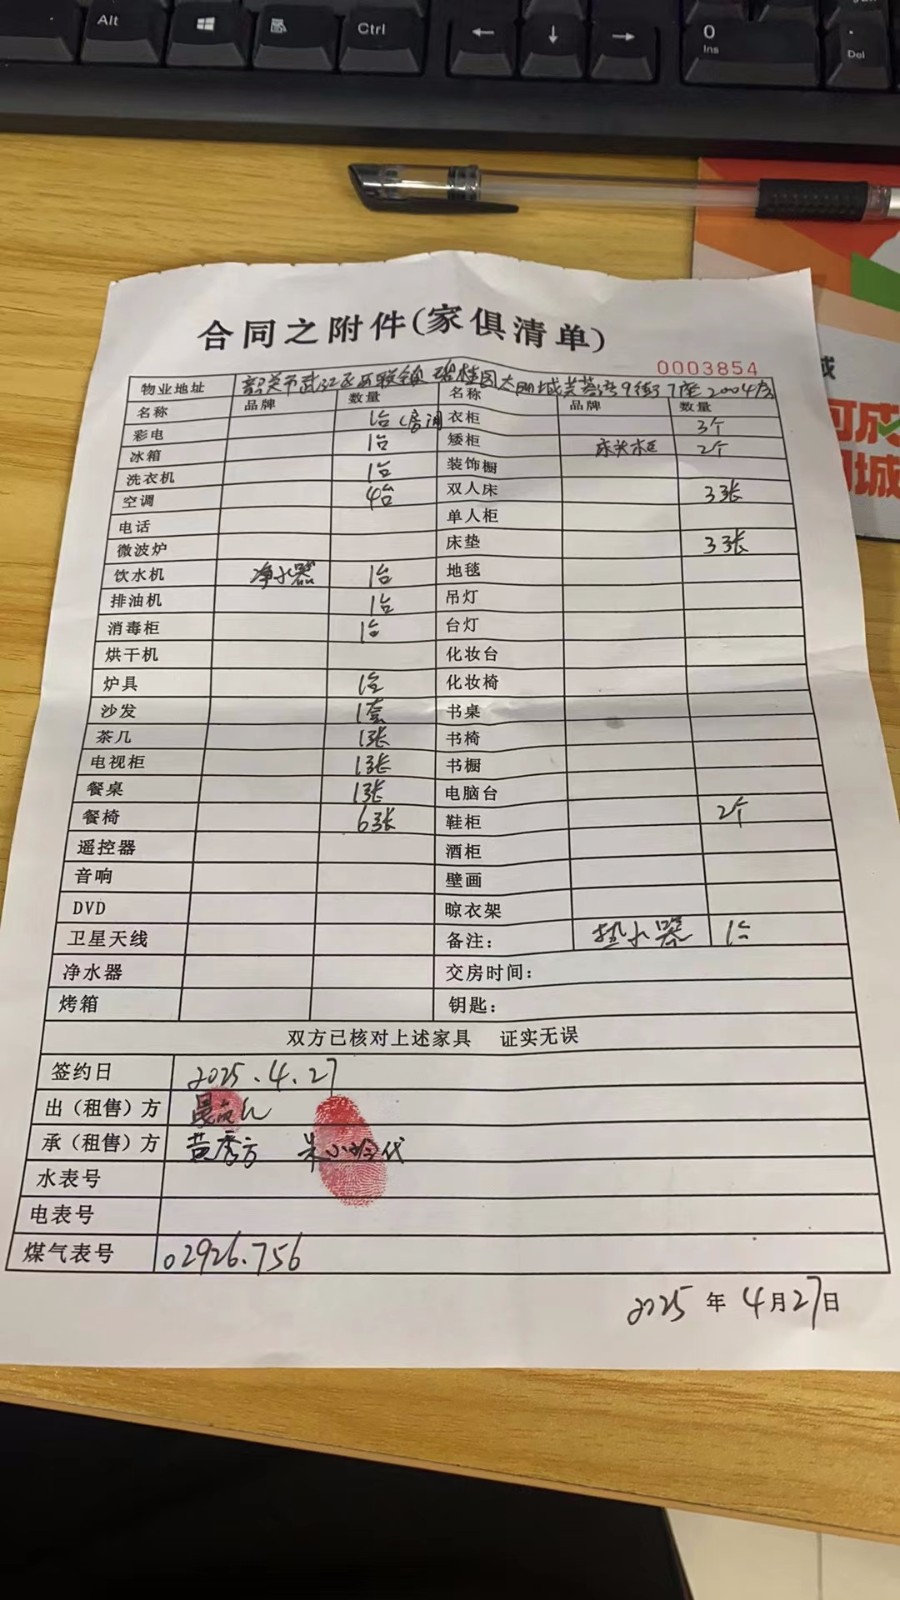 Alt
Ctrl
0
Ins
Del
合同之附件(家俱清单)
0003854
物业地址 韶关市武江区西联镇碧桂园太阳城芙蓉湾9街37座2004房
名称 品牌 数量 名称 品牌 数量
彩电 1台(房间 衣柜 3个
冰箱 1台 矮柜 床头柜 2个
洗衣机 1台 装饰橱
空调 4台 双人床 3张
电话 单人柜
微波炉 床垫 3张
饮水机 净水器 1台 地毯
排油机 1台 吊灯
消毒柜 1台 台灯
烘干机 化妆台
炉具 1台 化妆椅
沙发 1套 书桌
茶几 1张 书椅
电视柜 1张 书橱
餐桌 1张 电脑台
餐椅 6张 鞋柜 2个
遥控器 酒柜
音响 壁画
DVD 晾衣架
卫星天线 备注: 热水器 1台
净水器 交房时间:
烤箱 钥匙:
双方已核对上述家具 证实无误
签约日 2025.4.27
出(租售)方
承(租售)方 黄秀方 朱小玲代
水表号
电表号
煤气表号 02926.756
2025年4月27日
城
可成
湖城